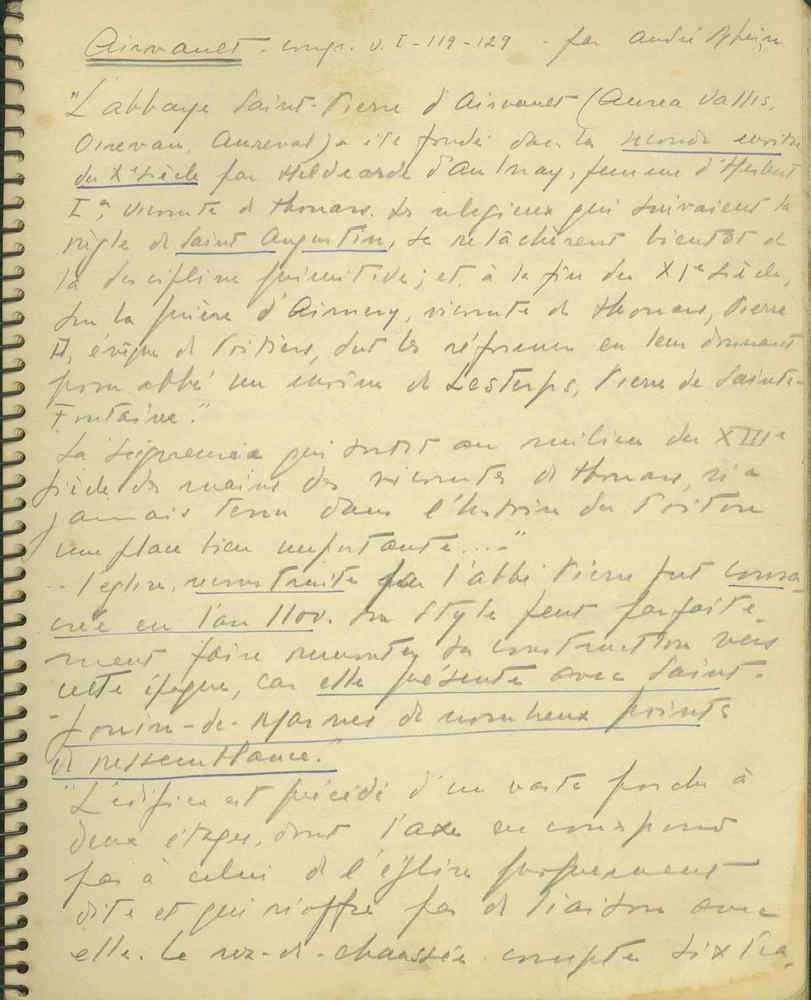 Airvault - congr. v. I - 119-129 - par André Rhein
"L'abbaye Saint-Pierre d'Airvault (Aurea Vallis,
Orrevau, Aureval) a été fondée dans la seconde moitié
du Xe siècle par Hildéarde d'Aulnay, femme d'Herbert
Ier, vicomte de Thouars. Les religieux qui suivaient la
règle de Saint Augustin, se relâchèrent bientôt de
la discipline primitive; et, à la fin du XIe siècle,
sur la prière d'Aimery, vicomte de Thouars, Pierre
II, évêque de Poitiers, dut les réformer en leur donnant
pour abbé un moine de Lesterps, Pierre de Sainte-
Fontaine."
"La seigneurie qui sortit au milieu du XIIIe
siècle des mains des vicomtes de Thouars, n'a
jamais tenu dans l'histoire du Poitou
une place bien importante...."
.. l'église, reconstruite par l'abbé Pierre fut consa-
crée en l'an 1100. Son style peut parfaite-
ment faire remonter sa construction vers
cette époque, car elle présente avec Saint-
-Jouin-de-Marnes de nombreux points
de ressemblance."
"L'édifice est précédé d'un vaste porche à
deux étages, dont l'axe ne correspond
pas à celui de l'église proprement
dite et qui n'offre pas de liaison avec
elle. Le rez-de-chaussée compte six tra-